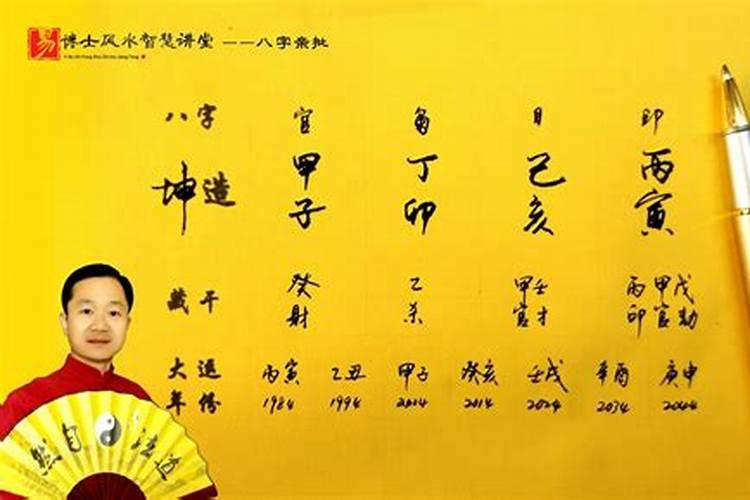 易 博士风水智慧讲堂 ——八字亲批
八字 官 日 印
坤造 甲子 丁卯 己亥 丙寅
藏干 癸 乙 甲壬 丙甲戊
财 杀 官才 印官劫
大运 丙寅 乙丑 甲子 癸亥 壬戌 辛酉 庚申
年份 1984 1994 2004 2014 2024 2034 2044
然自 法道